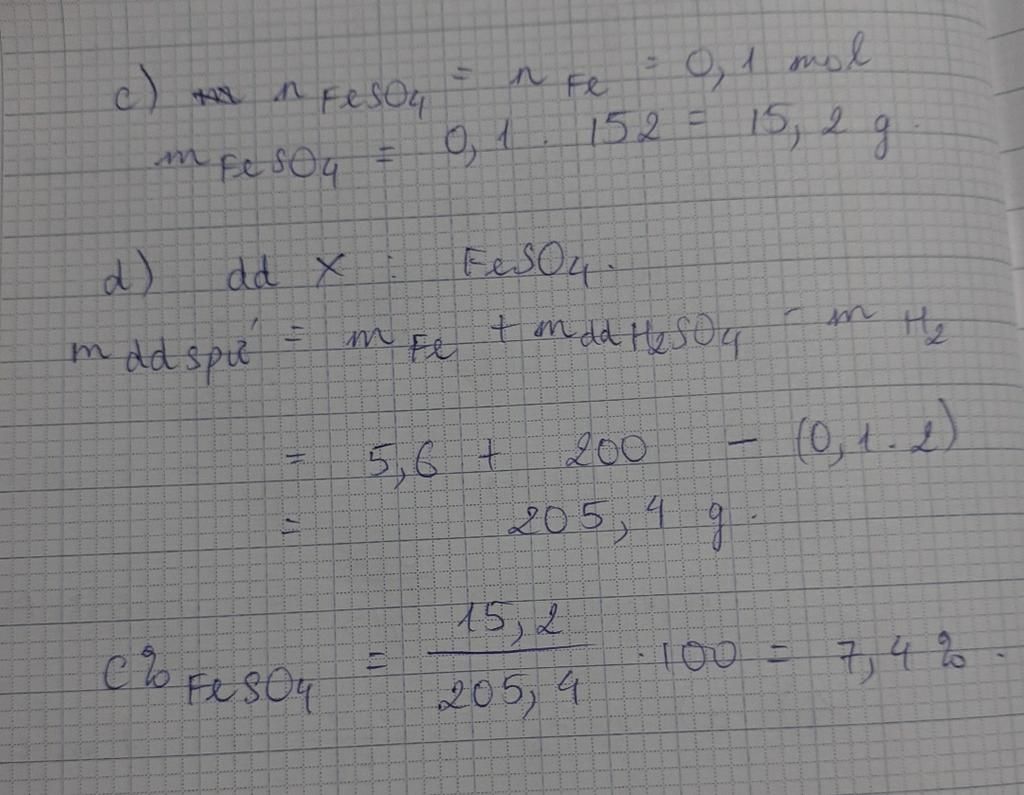 c) n FeSO4 = n Fe = 0,1 mol
m FeSO4 = 0,1 . 152 = 15,2 g.
d) dd X : FeSO4.
m dd spứ = m Fe + m dd H2SO4 - m H2
= 5,6 + 200 - (0,1 . 2)
= 205,4 g.
15,2
C% FeSO4 = ——— . 100 = 7,4 %.
205,4